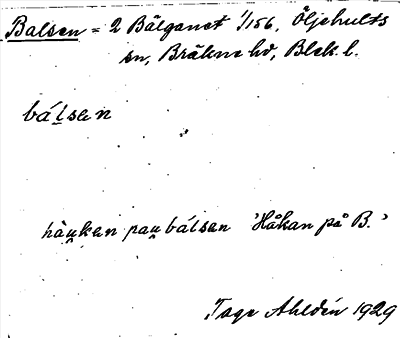 Balsen = 2 Bälganet 1/156, Öljehults
sn, Bräkne hd, Blek. l.
bálsen
hàu̯ken pau̯ bálsen 'Håkan på B.'
Tage Ahldén 1929